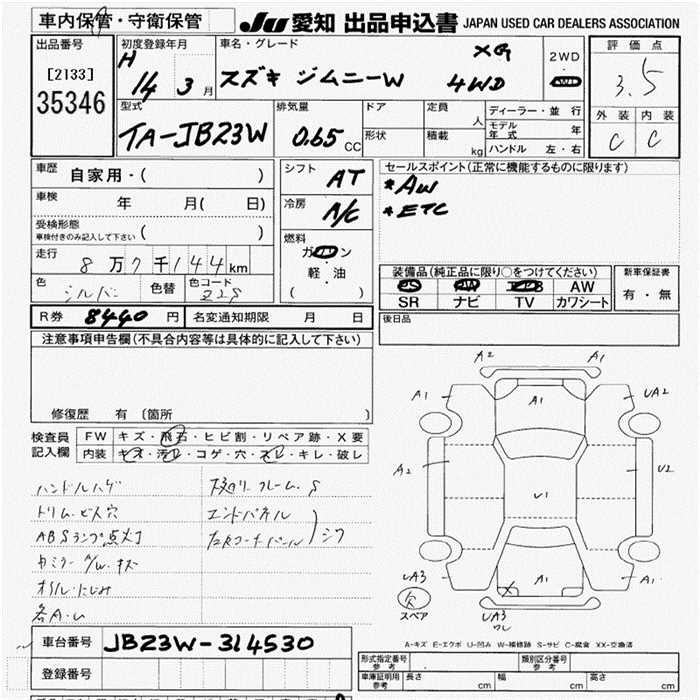 車内保管・守衛保管
JU 愛知 出品申込書 JAPAN USED CAR DEALERS ASSOCIATION
出品番号
[2133]
35346
初度登録年月
H 14 3 月
車名・グレード
スズキ ジムニーW XG 4WD
2WD
4WD
評価点
3.5
外装 内装
C C
型式
TA-JB23W
排気量
0.65 CC
ドア
形状
定員 人
積載 kg
ディーラー・並行
モデル年式 年
ハンドル 左・右
車歴 自家用・( )
車検 年 月( 日)
受検形態
車検付きのみ記入して下さい
走行 8万7千144km
色 シルバー 色替 色コード Z2S
シフト AT
冷房 A/C
燃料
ガソリン
・
軽・油
( )
セールスポイント(正常に機能するものに限ります)
*AW
*ETC
装備品(純正品に限り○をつけてください)
PS PW エアB AW
SR ナビ TV カワシート
新車保証書
有・無
R券 8440 円 名変通知期限 月 日
後日品
注意事項申告欄(不具合内容等は具体的に記入して下さい)
修復歴 有 〔箇所 〕
検査員記入欄
FW キズ・飛石・ヒビ割・リペア跡・X要
内装 キズ・汚レ・コゲ・穴・スレ・キレ・破レ
ハンドルハゲ
トリム・ビス穴
ABSランプ点灯
オイル・にじみ
各A・U
下廻リ・フレーム・S
エンドパネル
シワ
A2 A1
A1 A1 UA2
A2 U1 U2
UA3 A1 A1
欠
スペア
UA3
ワレ
A-キズ E-エクボ U-凹み W-補修跡 S-サビ C-腐食 XX-交換済
車台番号 JB23W-314530
登録番号
形式指定番号
参考
類別区分番号
参考
車庫証明用
参考
長さ cm 幅 cm 高さ cm